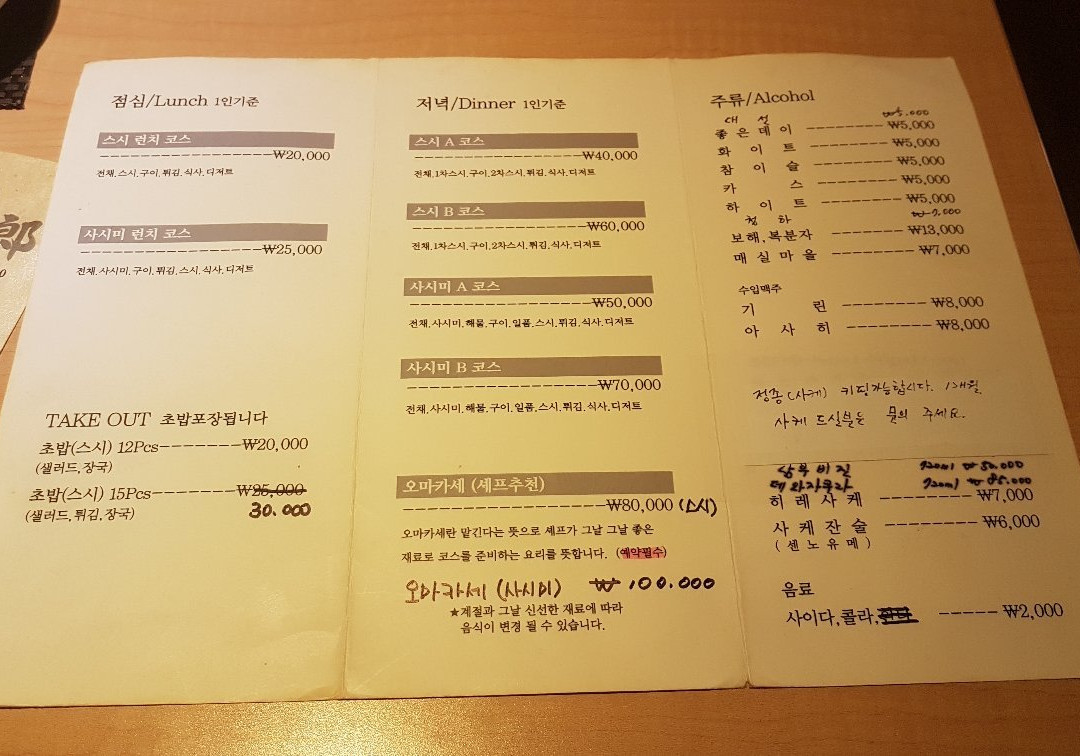 郎
점심/Lunch 1인기준
스시 런치 코스
------------------₩20,000
전채,스시,구이,튀김,식사,디저트
사시미 런치 코스
------------------₩25,000
전채,사시미,구이,튀김,스시,식사,디저트
TAKE OUT 초밥포장됩니다
초밥(스시) 12Pcs-------₩20,000
(샐러드,장국)
초밥(스시) 15Pcs-------₩25,000
(샐러드,튀김,장국) 30.000
저녁/Dinner 1인기준
스시 A 코스
------------------₩40,000
전채,1차스시,구이,2차스시,튀김,식사,디저트
스시 B 코스
------------------₩60,000
전채,1차스시,구이,2차스시,튀김,식사,디저트
사시미 A 코스
------------------₩50,000
전채,사시미,해물,구이,일품,스시,튀김,식사,디저트
사시미 B 코스
------------------₩70,000
전채,사시미,해물,구이,일품,스시,튀김,식사,디저트
오마카세 (셰프추천)
------------------₩80,000 (스시)
오마카세란 맡긴다는 뜻으로 셰프가 그날 그날 좋은
재료로 코스를 준비하는 요리를 뜻합니다. (예약필수)
오마카세 (사시미) ₩ 100.000
★계절과 그날 신선한 재료에 따라
음식이 변경 될 수 있습니다.
주류/Alcohol
대 선 ₩5.000
좋은데이 -------- ₩5,000
화이트 -------- ₩5,000
참이슬 -------- ₩5,000
카스 -------- ₩5,000
하이트 -------- ₩5,000
청하
보해,복분자 -------- ₩13,000
매실마을 -------- ₩7,000
수입맥주
기린 -------- ₩8,000
아사히 -------- ₩8,000
정종(사케) 키핑가능합니다. 1개월
사케 드실분은 문의 주세요.
720ml ₩ 50.000
데와자쿠라 720ml ₩ 85.000
히레사케 -------- ₩7,000
사케잔술 -------- ₩6,000
(센노유메)
음료
사이다,콜라, ----- ₩2,000